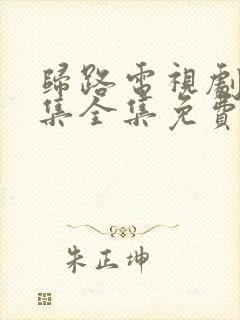 歸路電視劇
集全集免費
朱正坤